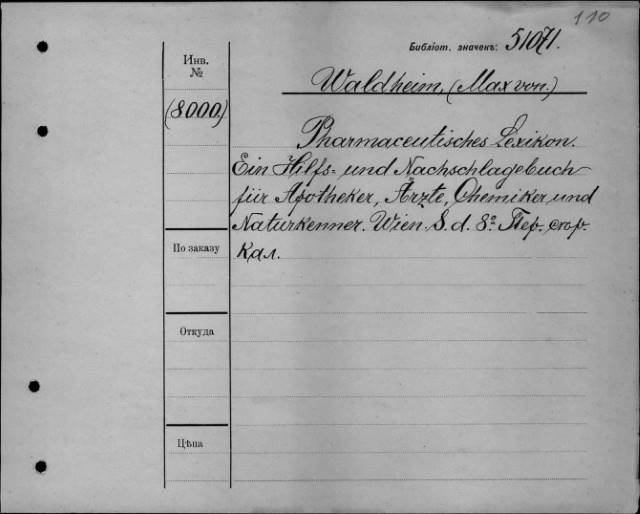 110
Библіот. значекъ: 51071.
Инв.
№
Waldheim, (Max von.)
(8000.)
Pharmaceutisches Lexikon.
Ein Hilfs- und Nachschlagebuch
für Apotheker, Ärzte, Chemiker und
Naturkenner. Wien. S. d. 8º Пер. сгор.
По заказу
Кал.
Откуда
Цѣна